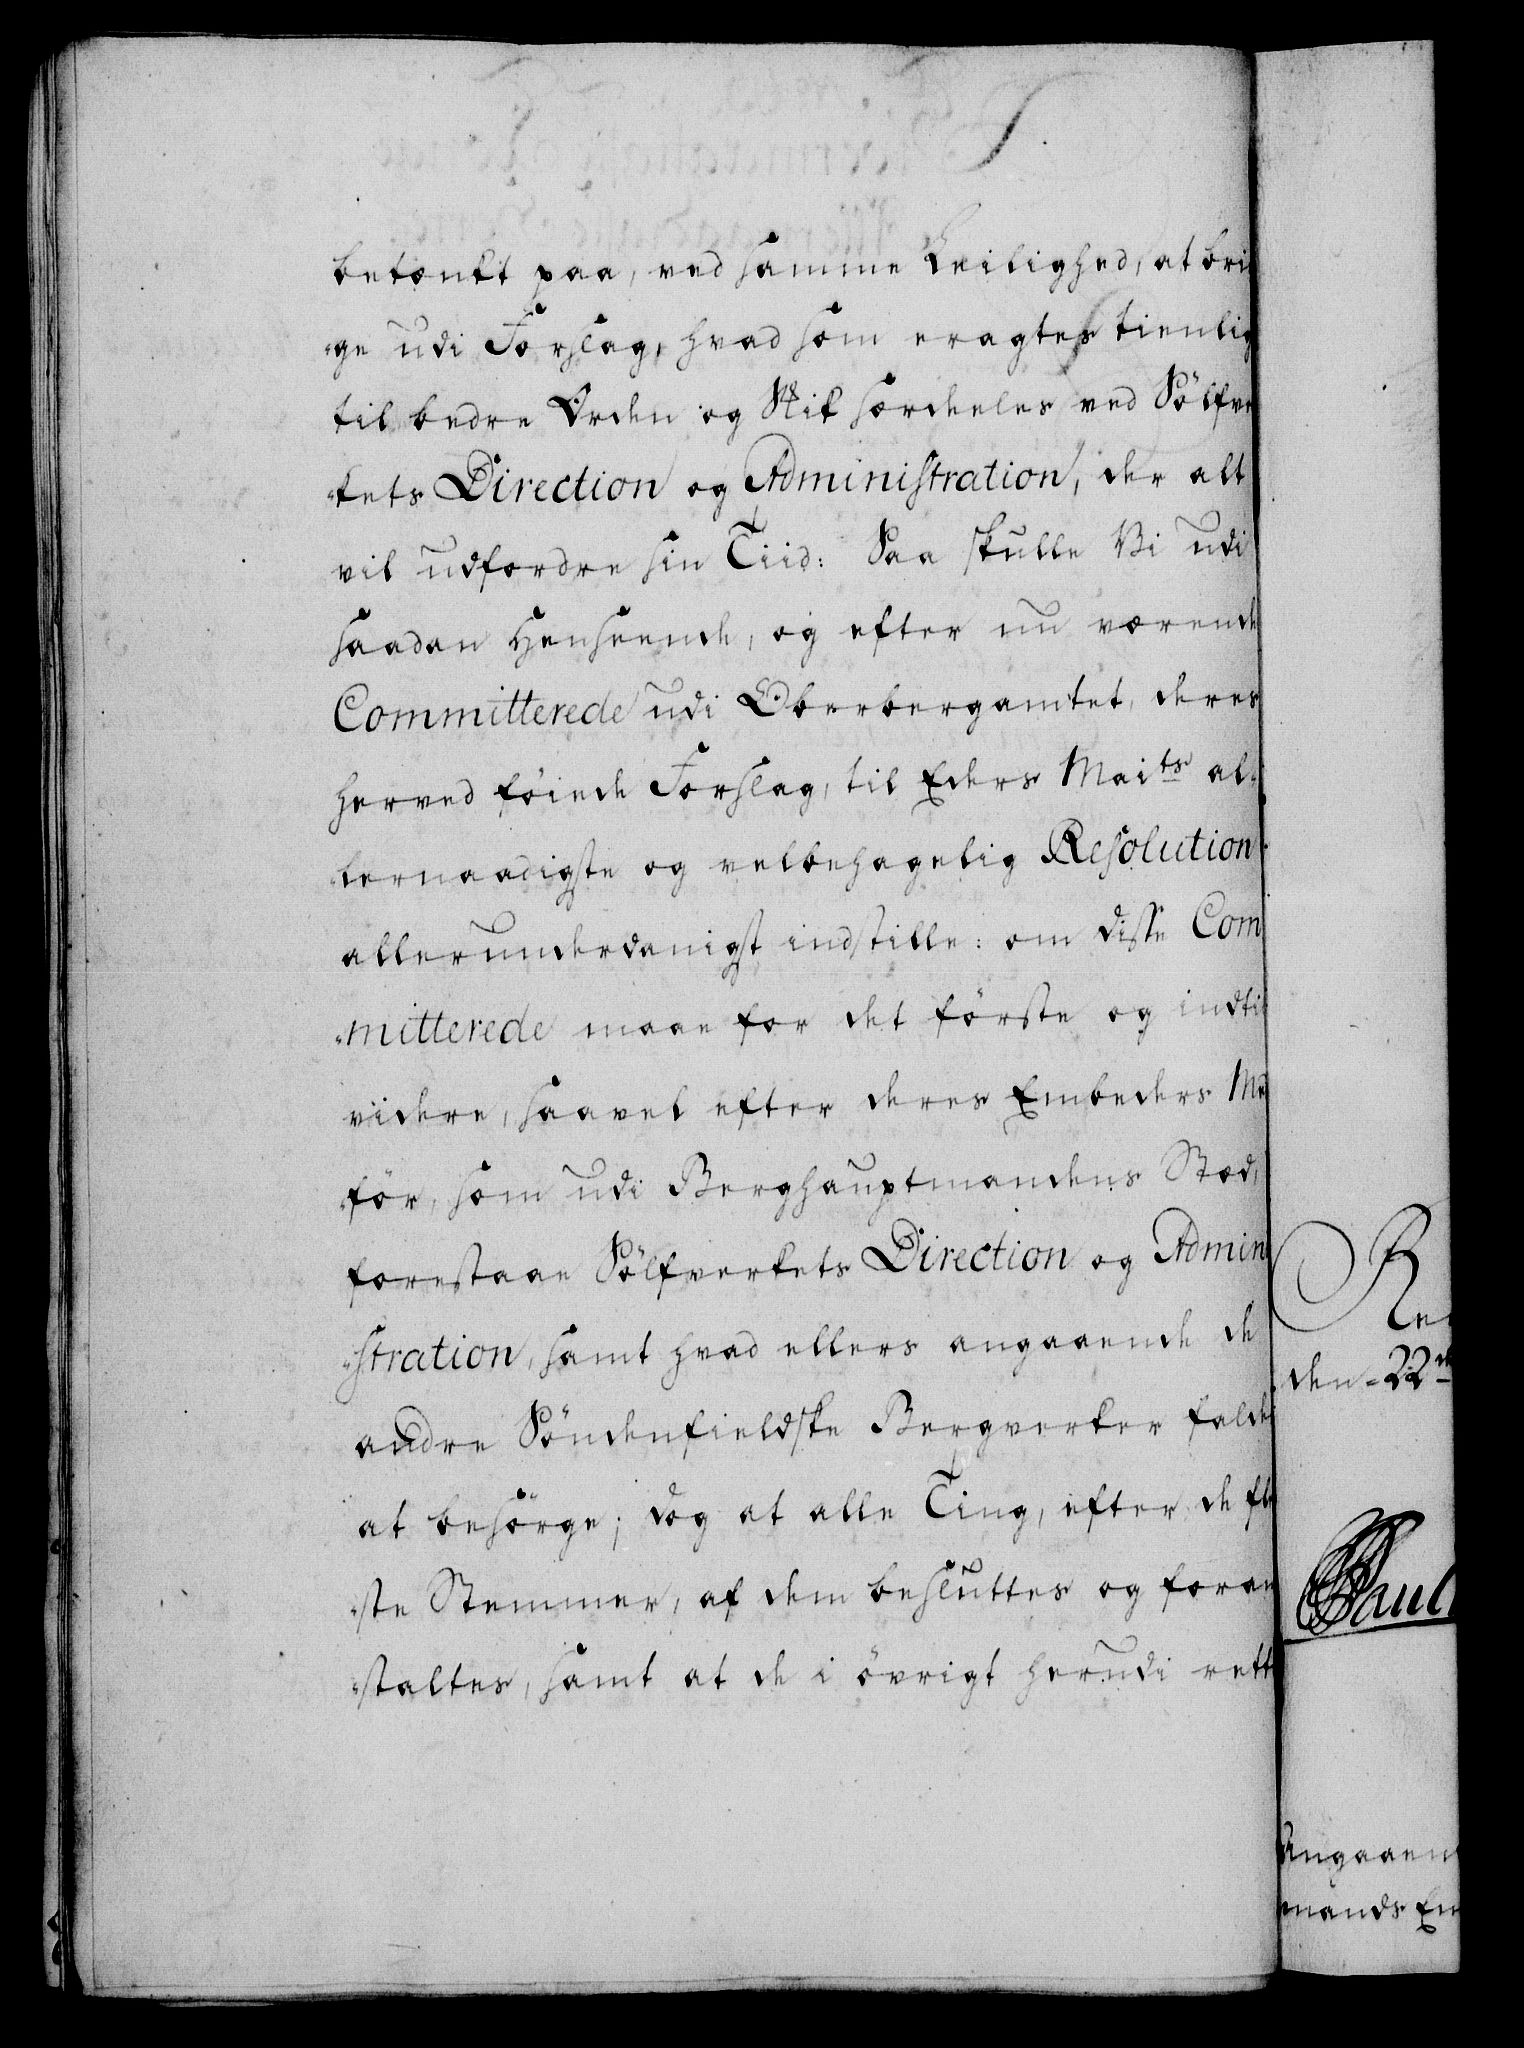 betænkt paa, ved samme Leilighed, at bri
-ge udi Forslag, hvad som eragtes tienlig
til bedre Orden og Skik særdeles ved Sölfve
-kets Direction og Administration, der alt
vil udfordre sin Tiid: Saa skulle Vi udi
saadan Henseende, og efter nu værende
Committerede udi Oberbergamtet, deres
herved föiede Forslag, til Eders Maits al-
-lernaadigste og velbehagelig Resolution
allerunderdanigst indstille: om disse Com
-mitterede maae for det förste og indtil
viidere, saavel efter deres Embeders Med
-för, som udi Berghauptmandens Stæd,
forestaae Sölfverkets Direction og Admini
-stration, samt hvad ellers angaaende de
andre Söndenfieldske Bergverker falder
at besörge; dog at alle Ting, efter de fle
-ste Stemmer, af dem besluttes og foran
-staltes, samt at de i övrigt herudi rette
den 22de
Paul
Angaaen
mands Em